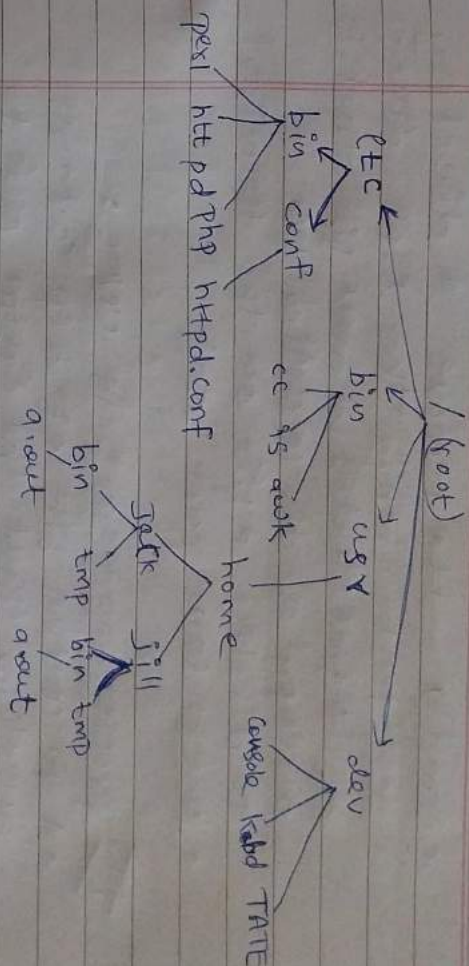 / (root)
etc bin usr dev
bin conf cc is awk home console kbd TATE
perl httpd php httpd.conf Jack jill
bin tmp bin tmp
a.out a.out